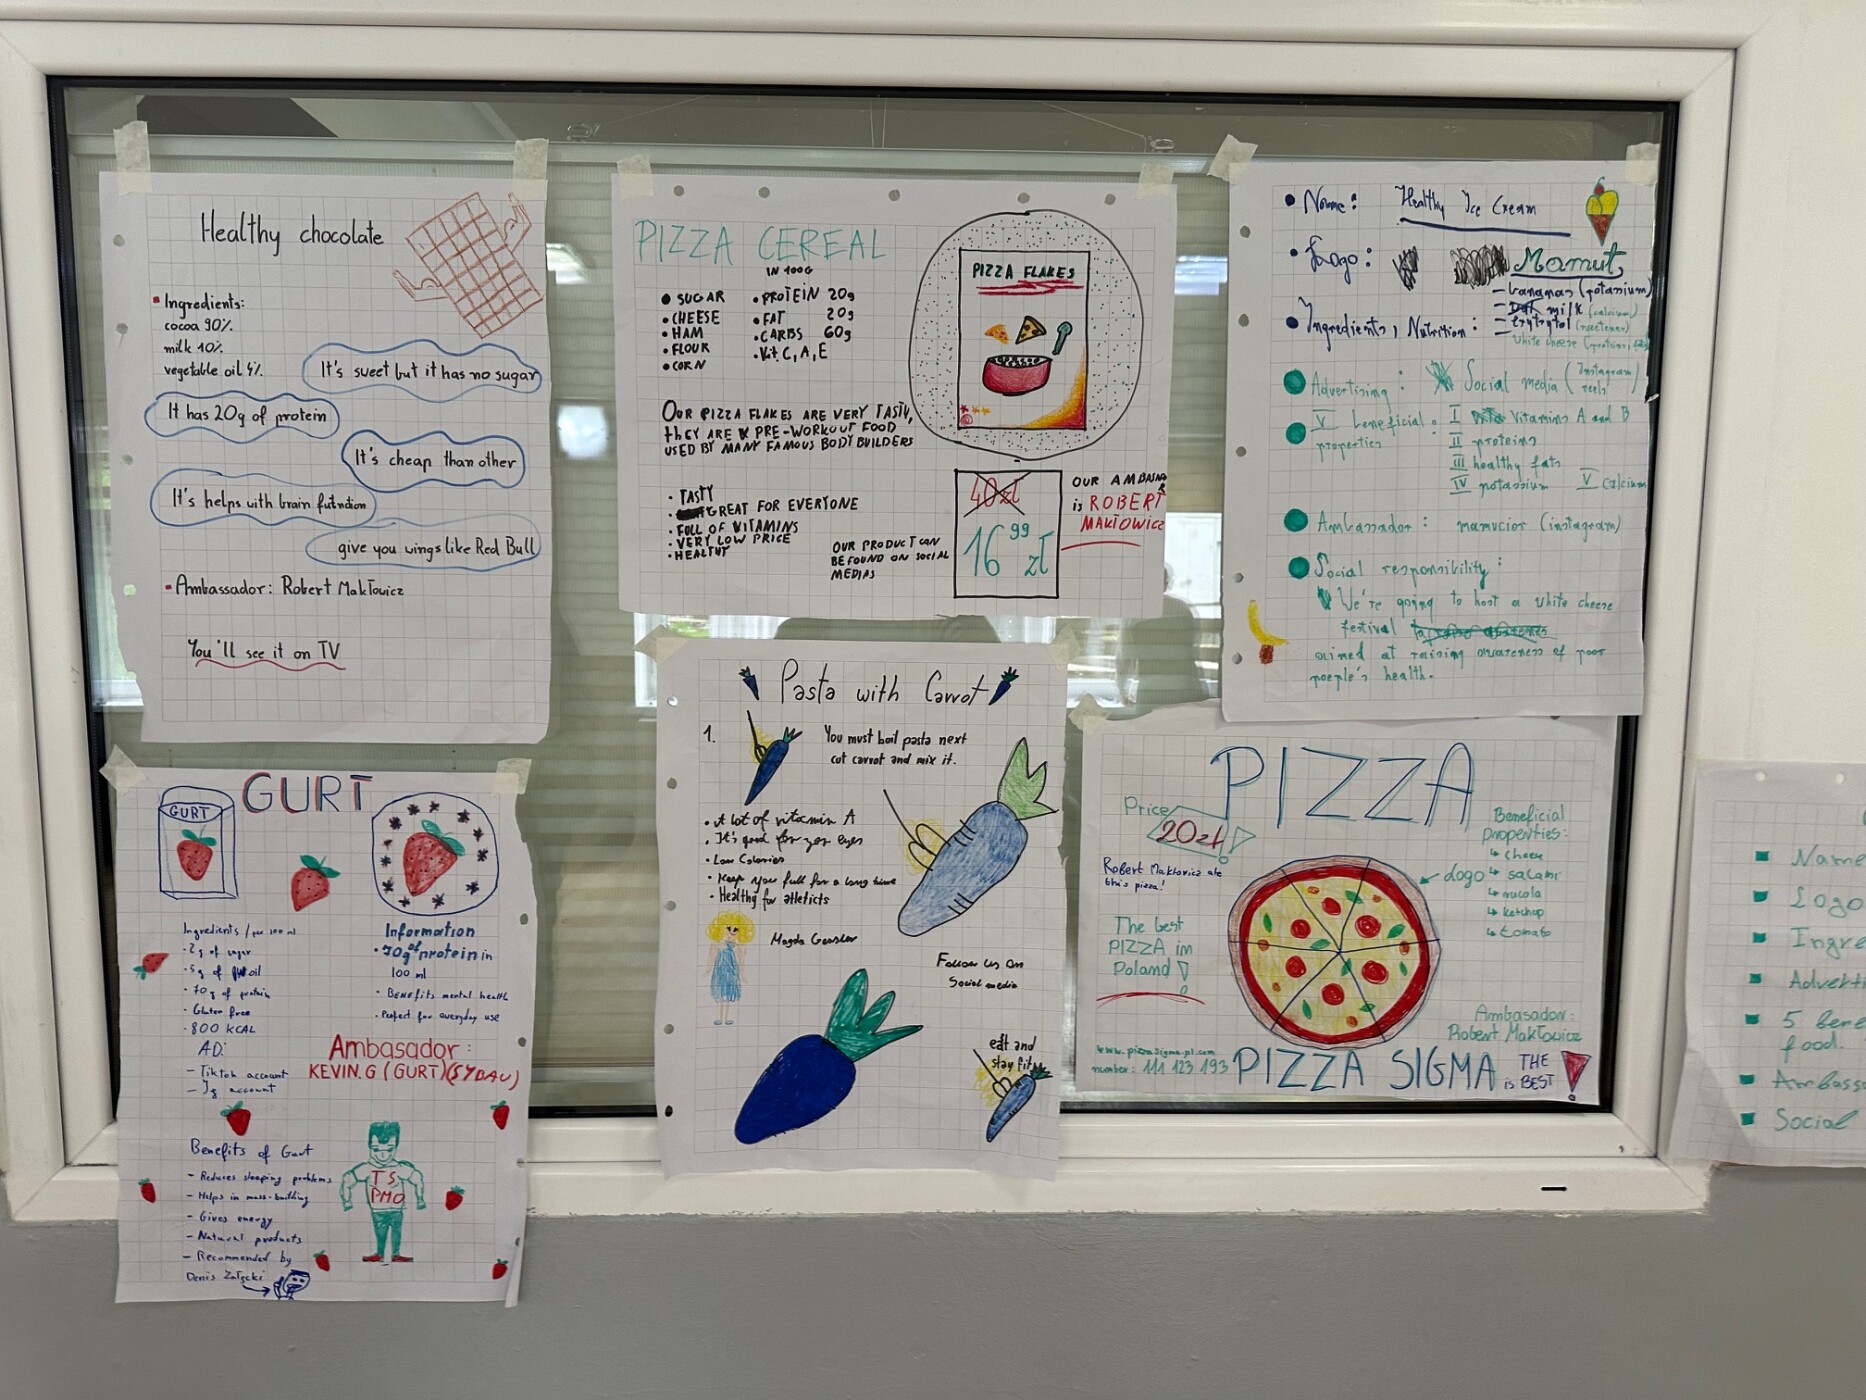 Healthy chocolate
Ingredients:
cocoa 90%
milk 10%
vegetable oil 4%
It's sweet but it has no sugar
It has 20g of protein
It's cheap than other
It's helps with brain
give you wings like Red Bull
Ambassador: Robert Makłowicz
You'll see it on TV
PIZZA CEREAL
IN 100G
SUGAR
CHEESE
HAM
FLOUR
CORN
PROTEIN 20g
FAT 20g
CARBS 60g
Vit. C, A, E
PIZZA FLAKES
OUR PIZZA FLAKES ARE VERY TASTY,
they ARE PRE-WORKOUT FOOD
USED BY MANY FAMOUS BODYBUILDERS
TASTY
GREAT FOR EVERYONE
FULL OF VITAMINS
VERY LOW PRICE
HEALTHY
OUR PRODUCT CAN
BE FOUND ON SOCIAL
MEDIAS
40zł
16 99 zł
OUR
is ROBERT
MAKŁOWICZ
Name: Healthy Ice Cream
Logo: Mamut
Ingredients, Nutrition:
- bananas (potassium)
milk (calcium)
white cheese
Advertising: Social media (Instagram reels)
V beneficial properties:
I Vitamins A and B
II proteins
III healthy fats
IV potassium V calcium
Ambassador: mamucior (instagram)
Social responsibility:
We're going to host a white cheese
festival
aimed at raising awareness of poor
poeple's health.
GURT
GURT
Ingredients / per 100 ml
2g of sugar
5g of oil
70g of protein
Gluten free
800 KCAL
AD:
- Tiktok account
- Ig account
Information
70g of protein in
100 ml
Benefits mental health
Perfect for everyday use
Ambasador:
KEVIN.G (GURT) (SYBAU)
Benefits of Gurt
- Reduces sleeping problems
- Helps in mass-building
- Gives energy
- Natural products
- Recommended by
Denis Załęcki
TS
PMO
Pasta with Carrot
1. You must boil pasta next
cut carrot and mix it.
A lot of vitamin A
It's good for yor eyes
Low Calories
Keep you full for a long time
Healthy for atleticts
Magda Gessler
Follow us on
Social media
eat and
stay fit
PIZZA
Price
20zł
Robert Makłowicz ate
this pizza!
The best
PIZZA in
Poland!
www.pizzasigma.pl.com
number: 111 123 193
Beneficial
properties:
salami
rucola
ketchup
tomato
Logo
Ambasador:
Robert Makłowicz
PIZZA SIGMA THE
is BEST!
Name
Logo
Ingre
Adverti
5 bene
food.
Ambass
Social